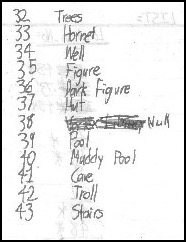 32 Trees
33 Hornet
34 Well
35 Figure
36 Dark Figure
37 Hut
38 Null
39 Pool
40 Muddy Pool
41 Cave
42 Troll
43 Stairs